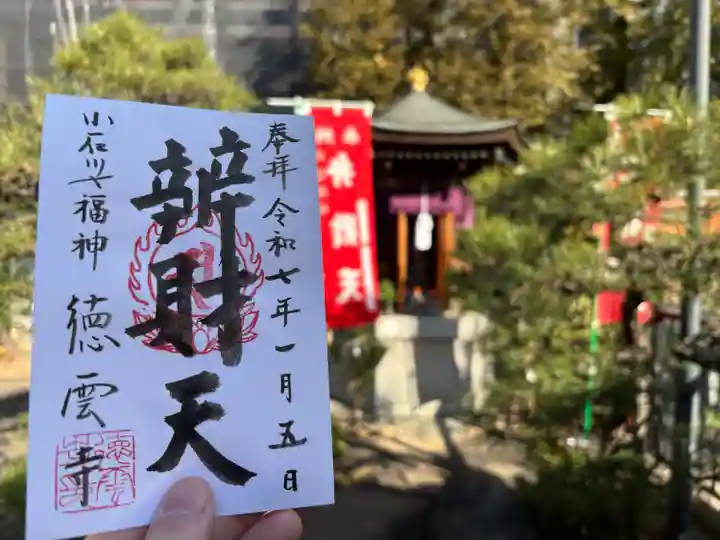 奉拝 令和七年一月五日
辨財天
小石川七福神
徳雲寺
弁財天